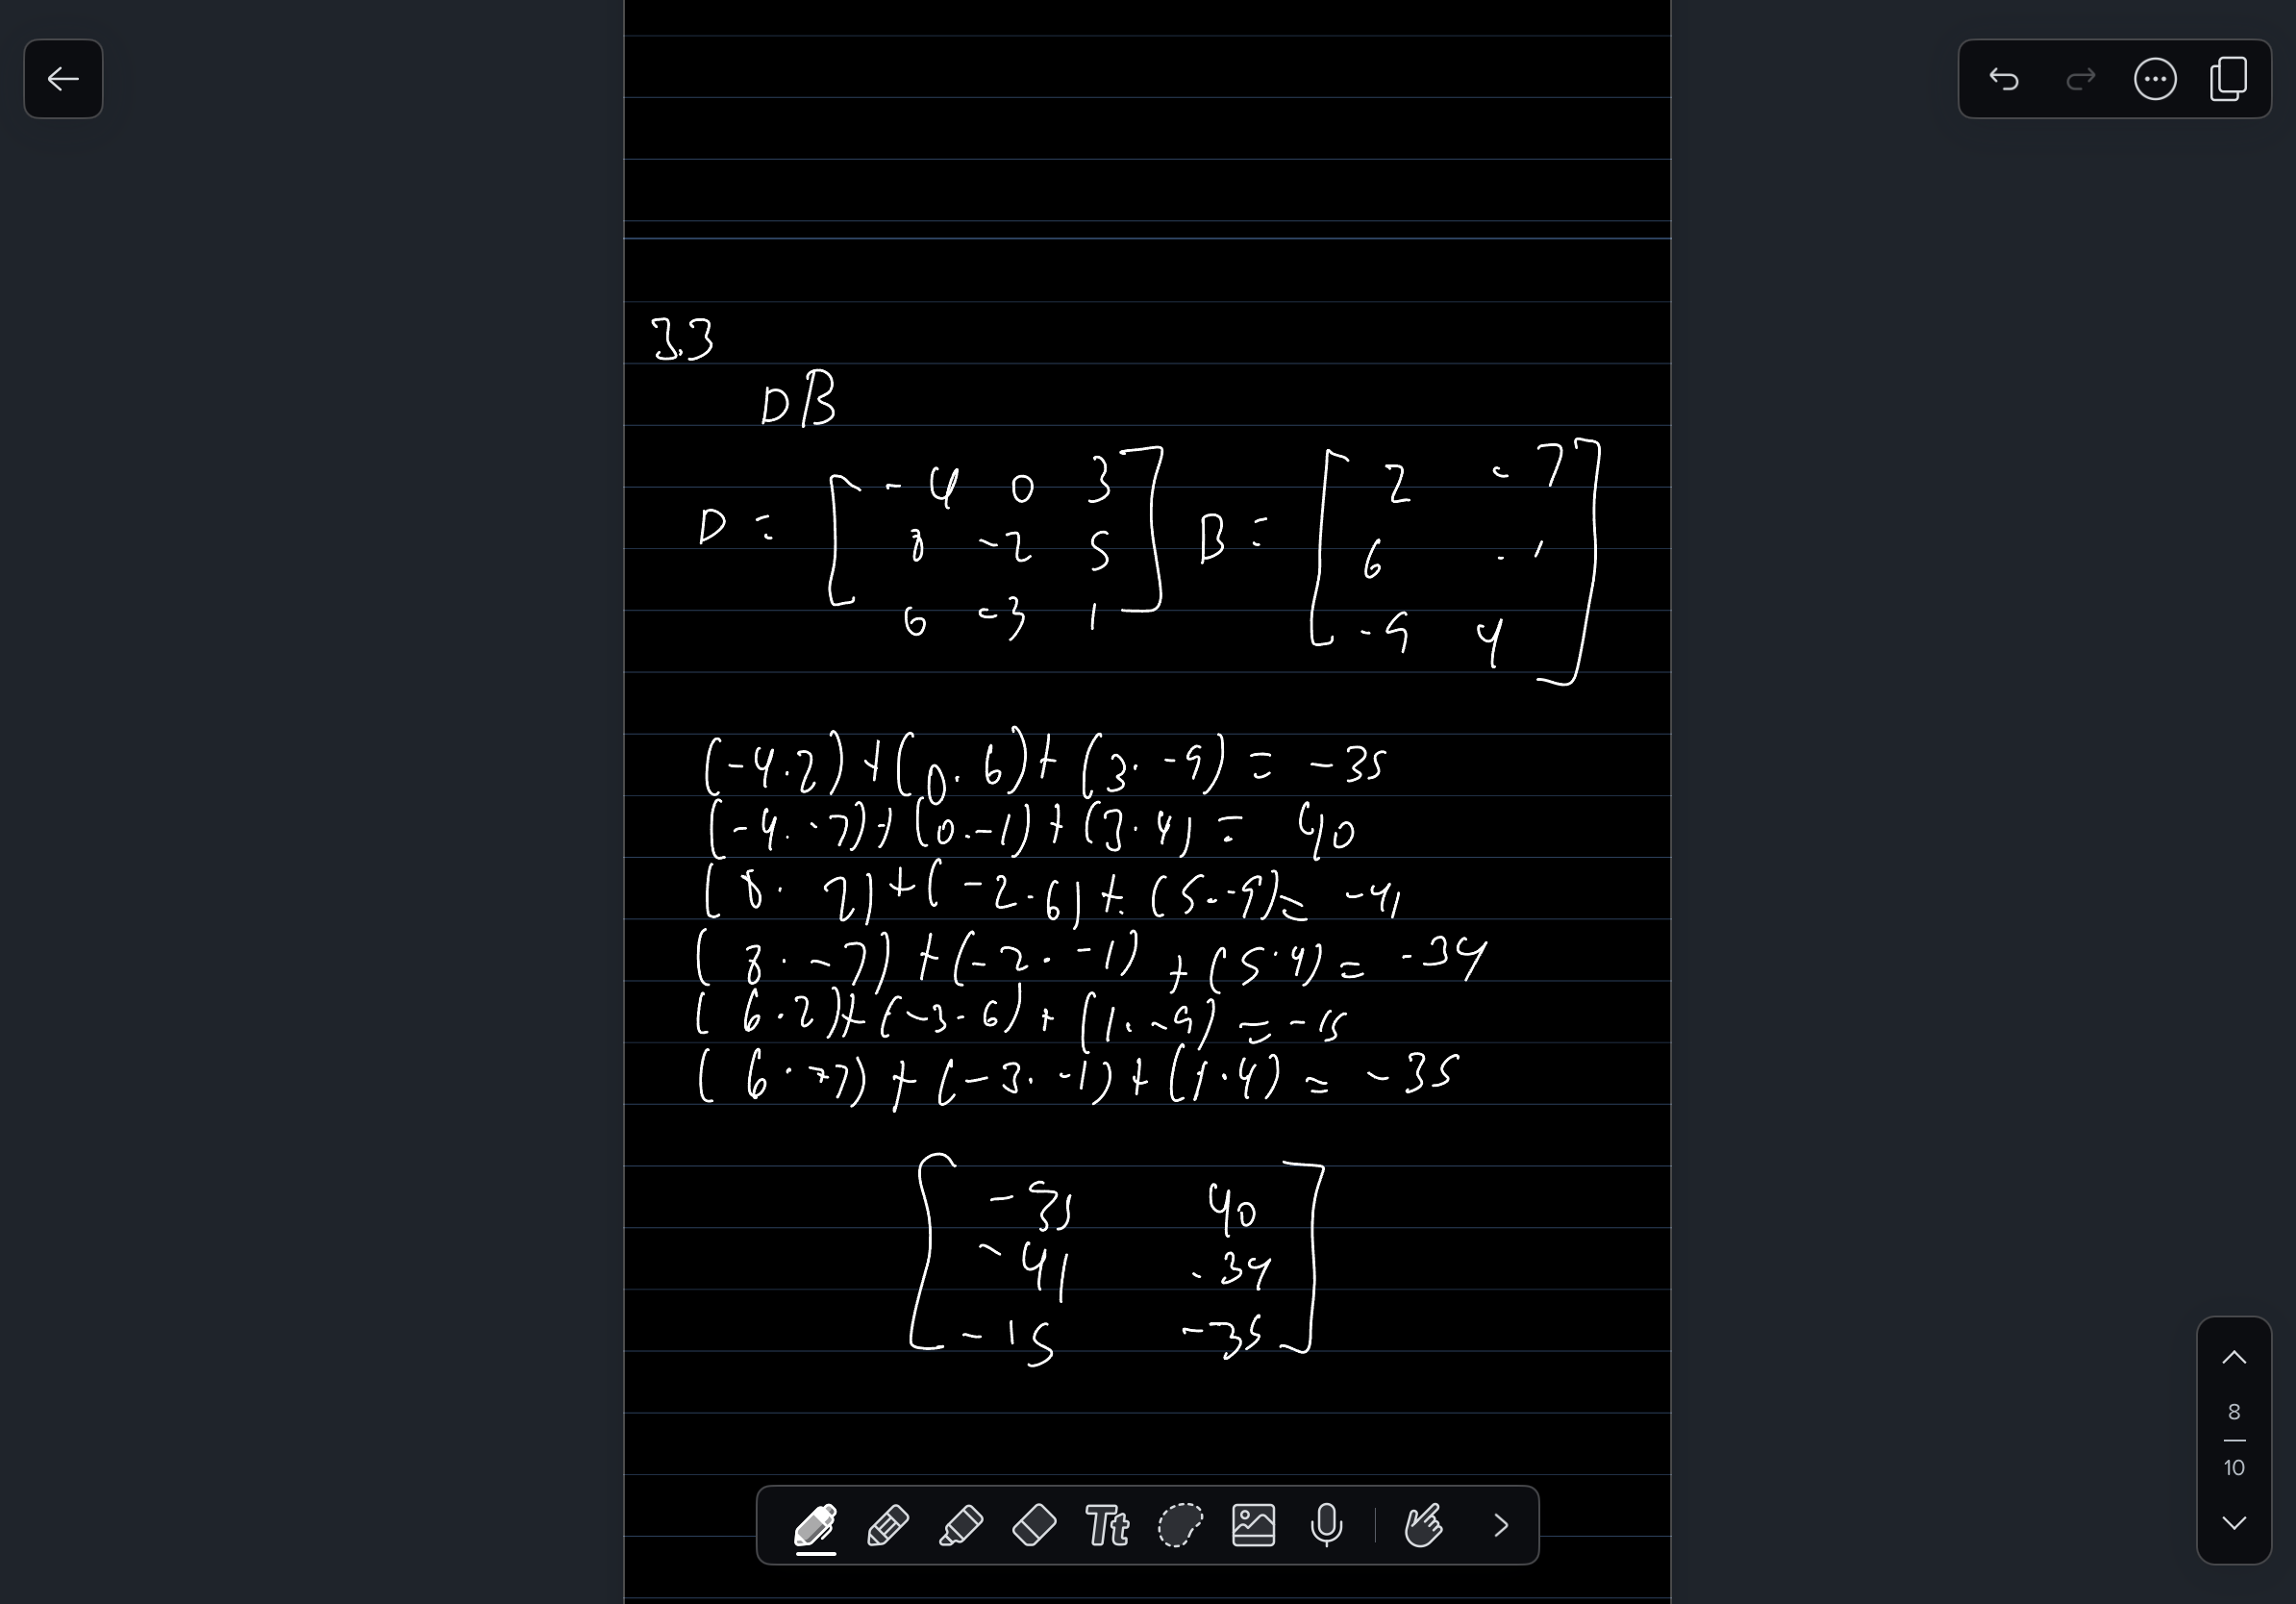 3.3
DB
D = [ -4 0 3 ] B = [ 2 -7 ]
8 -2 5 6 -1
6 -3 1 -9 4
(-4·2)+(0·6)+(3·-9) = -35
(-4·-7)+(0·-1)+(3·4) = 40
(8·2)+(-2·6)+(5·-9) = -41
(8·-7)+(-2·-1)+(5·4) = -34
(6·2)+(-3·6)+(1·-9) = -15
(6·-7)+(-3·-1)+(1·4) = -35
[ -35 40 ]
-41 -34
-15 -35
Tt
8
10